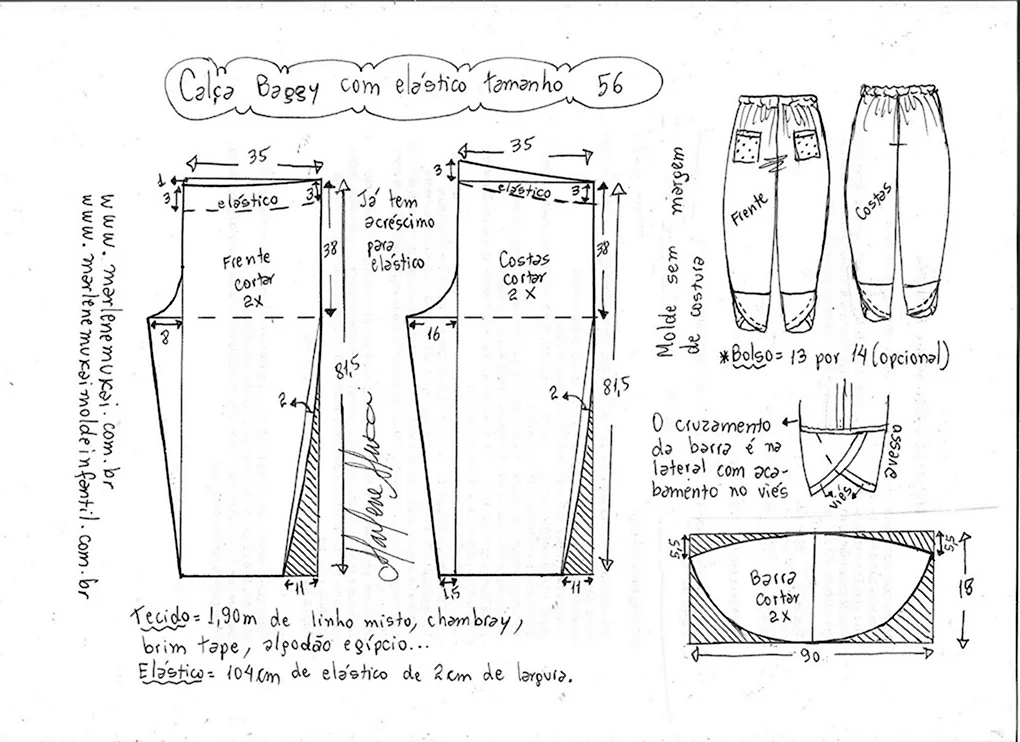 Calça Baggy com elástico tamanho 56
www.marlenemukai.com.br
www.marlenemukaimoldeinfantil.com.br
35
1
3
3
elástico
38
Frente
cortar
2X
8
81,5
2
11
Já tem
acréscimo
para
elástico
Marlene Mukai
35
3
3
elástico
38
Costas
cortar
2X
16
81,5
2
1,5
11
Molde sem margem
de costura
Frente
Costas
*Bolso= 13 por 14 (opcional)
O cruzamento
da barra é na
lateral com aca-
bamento no viés
avesso
viés
5,5
5,5
18
Barra
Cortar
2X
90
Tecido= 1,90m de linho misto, chambray,
brim tape, algodão egípcio...
Elástico= 104cm de elástico de 2cm de largura.